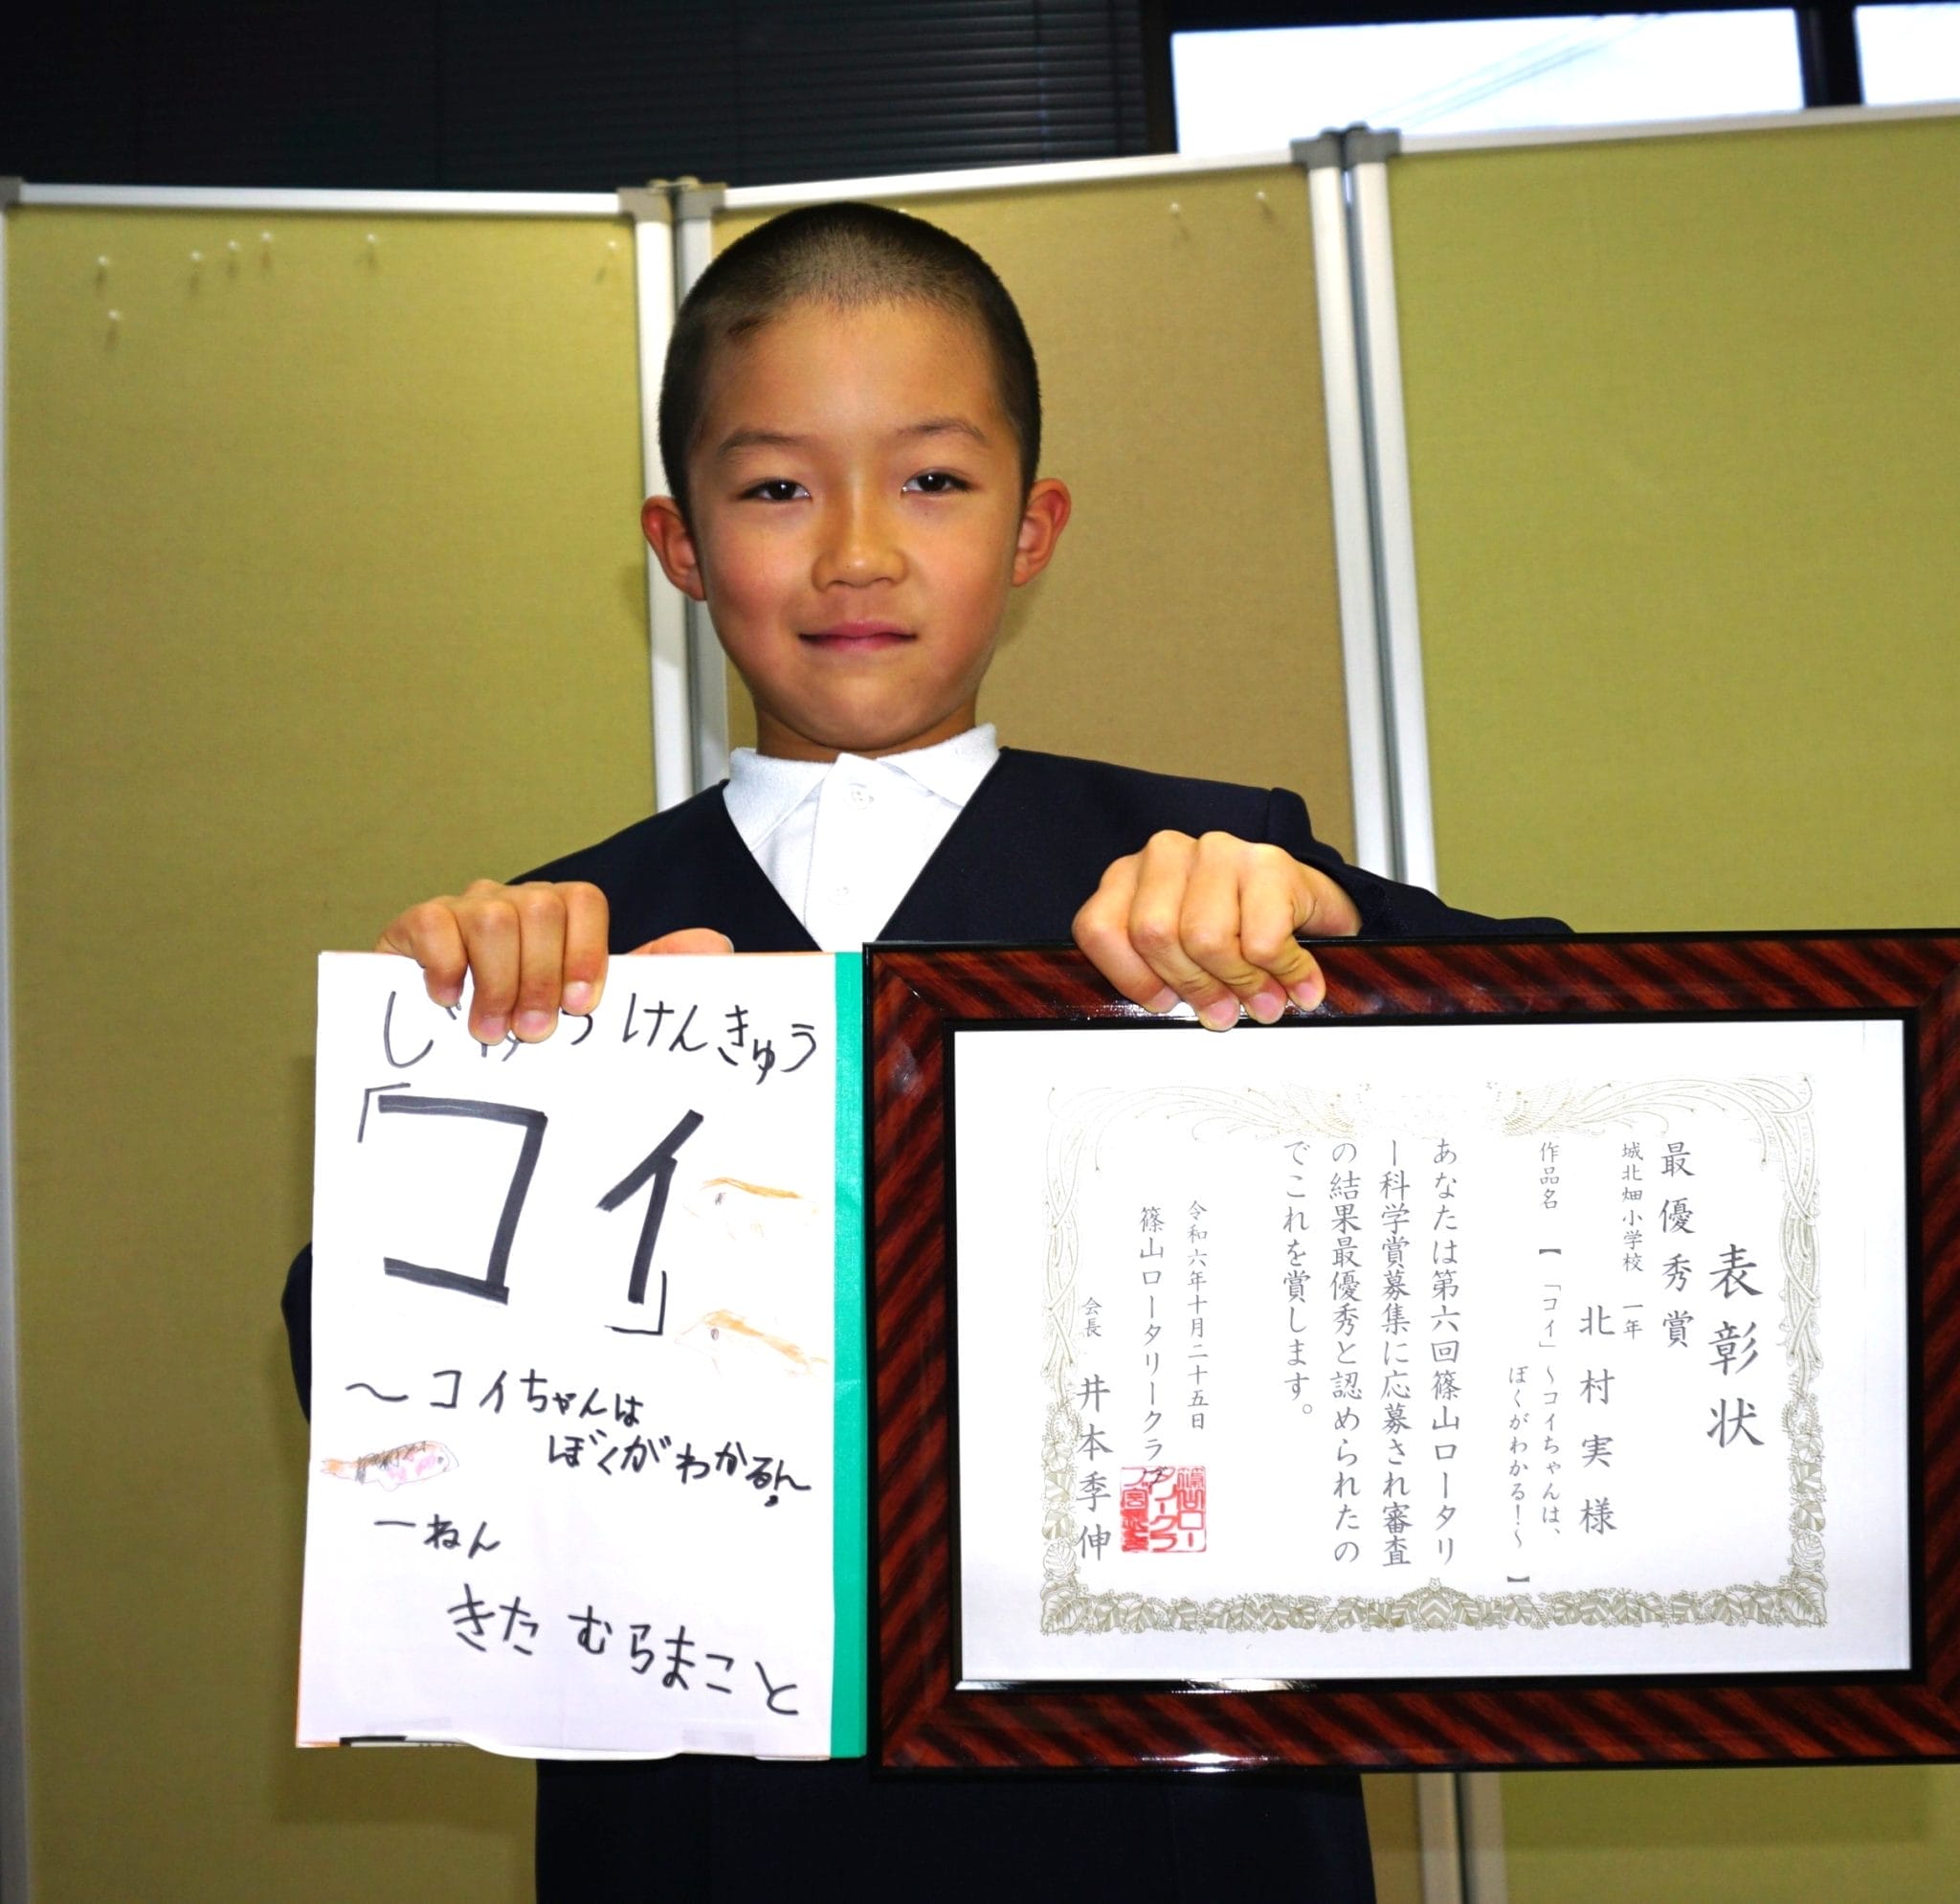 じゆうけんきゅう
「コイ」
～コイちゃんは
ぼくがわかるん
一ねん
きたむらまこと
表彰状
最優秀賞
城北畑小学校 一年
北村実様
作品名 【「コイ」～コイちゃんは、
ぼくがわかる!～】
あなたは第六回篠山ロータリ
ー科学賞募集に応募され審査
の結果最優秀と認められたの
でこれを賞します。
令和六年十月二十五日
篠山ロータリークラブ
会長 井本季伸